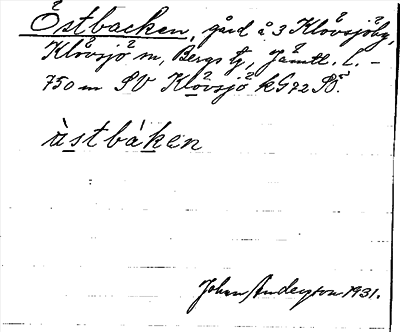 Östbacken, gård å 3 Klövsjöby,
Klövsjö sn, Bergs tg, Jämtl. L. –
750 m SV Klövsjö k G72 SÖ.
àstbáken
Johan Andersson 1931.